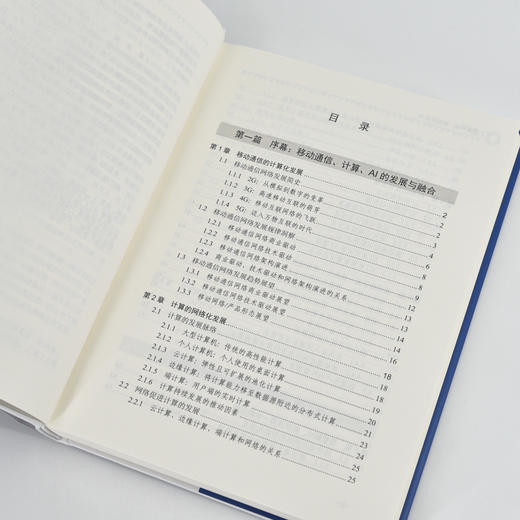 目 录
第一篇 序幕：移动通信、计算、AI的发展与融合
第1章 移动通信的计算化发展 2
1.1 移动通信网络发展简史 2
1.1.1 2G：从模拟到数字的变革 2
1.1.2 3G：高速移动互联的萌芽 3
1.1.3 4G：移动互联网络的飞跃 4
1.1.4 5G：迈入万物互联的时代 5
1.2 移动通信网络发展规律洞察 6
1.2.1 移动通信网络商业驱动 6
1.2.2 移动通信网络技术驱动 8
1.2.3 移动通信网络架构演进 8
1.2.4 商业驱动、技术驱动和网络架构演进的关系 12
1.3 移动通信网络发展趋势展望 13
1.3.1 移动通信网络商业驱动展望 13
1.3.2 移动通信网络技术驱动展望 14
1.3.3 移动网络/产品形态展望 16
第2章 计算的网络化发展 18
2.1 计算的发展脉络 18
2.1.1 大型计算机：传统的高性能计算 18
2.1.2 个人计算机：个人使用的桌面计算 19
2.1.3 云计算：弹性且可扩展的池化计算 20
2.1.4 边缘计算：将计算能力移至数据源附近的分布式计算 21
2.1.5 端计算：用户端的实时计算 23
2.1.6 计算持续发展的推动因素 24
2.2 网络促进计算的发展 25
2.2.1 云计算、边缘计算、端计算和网络的关系 25